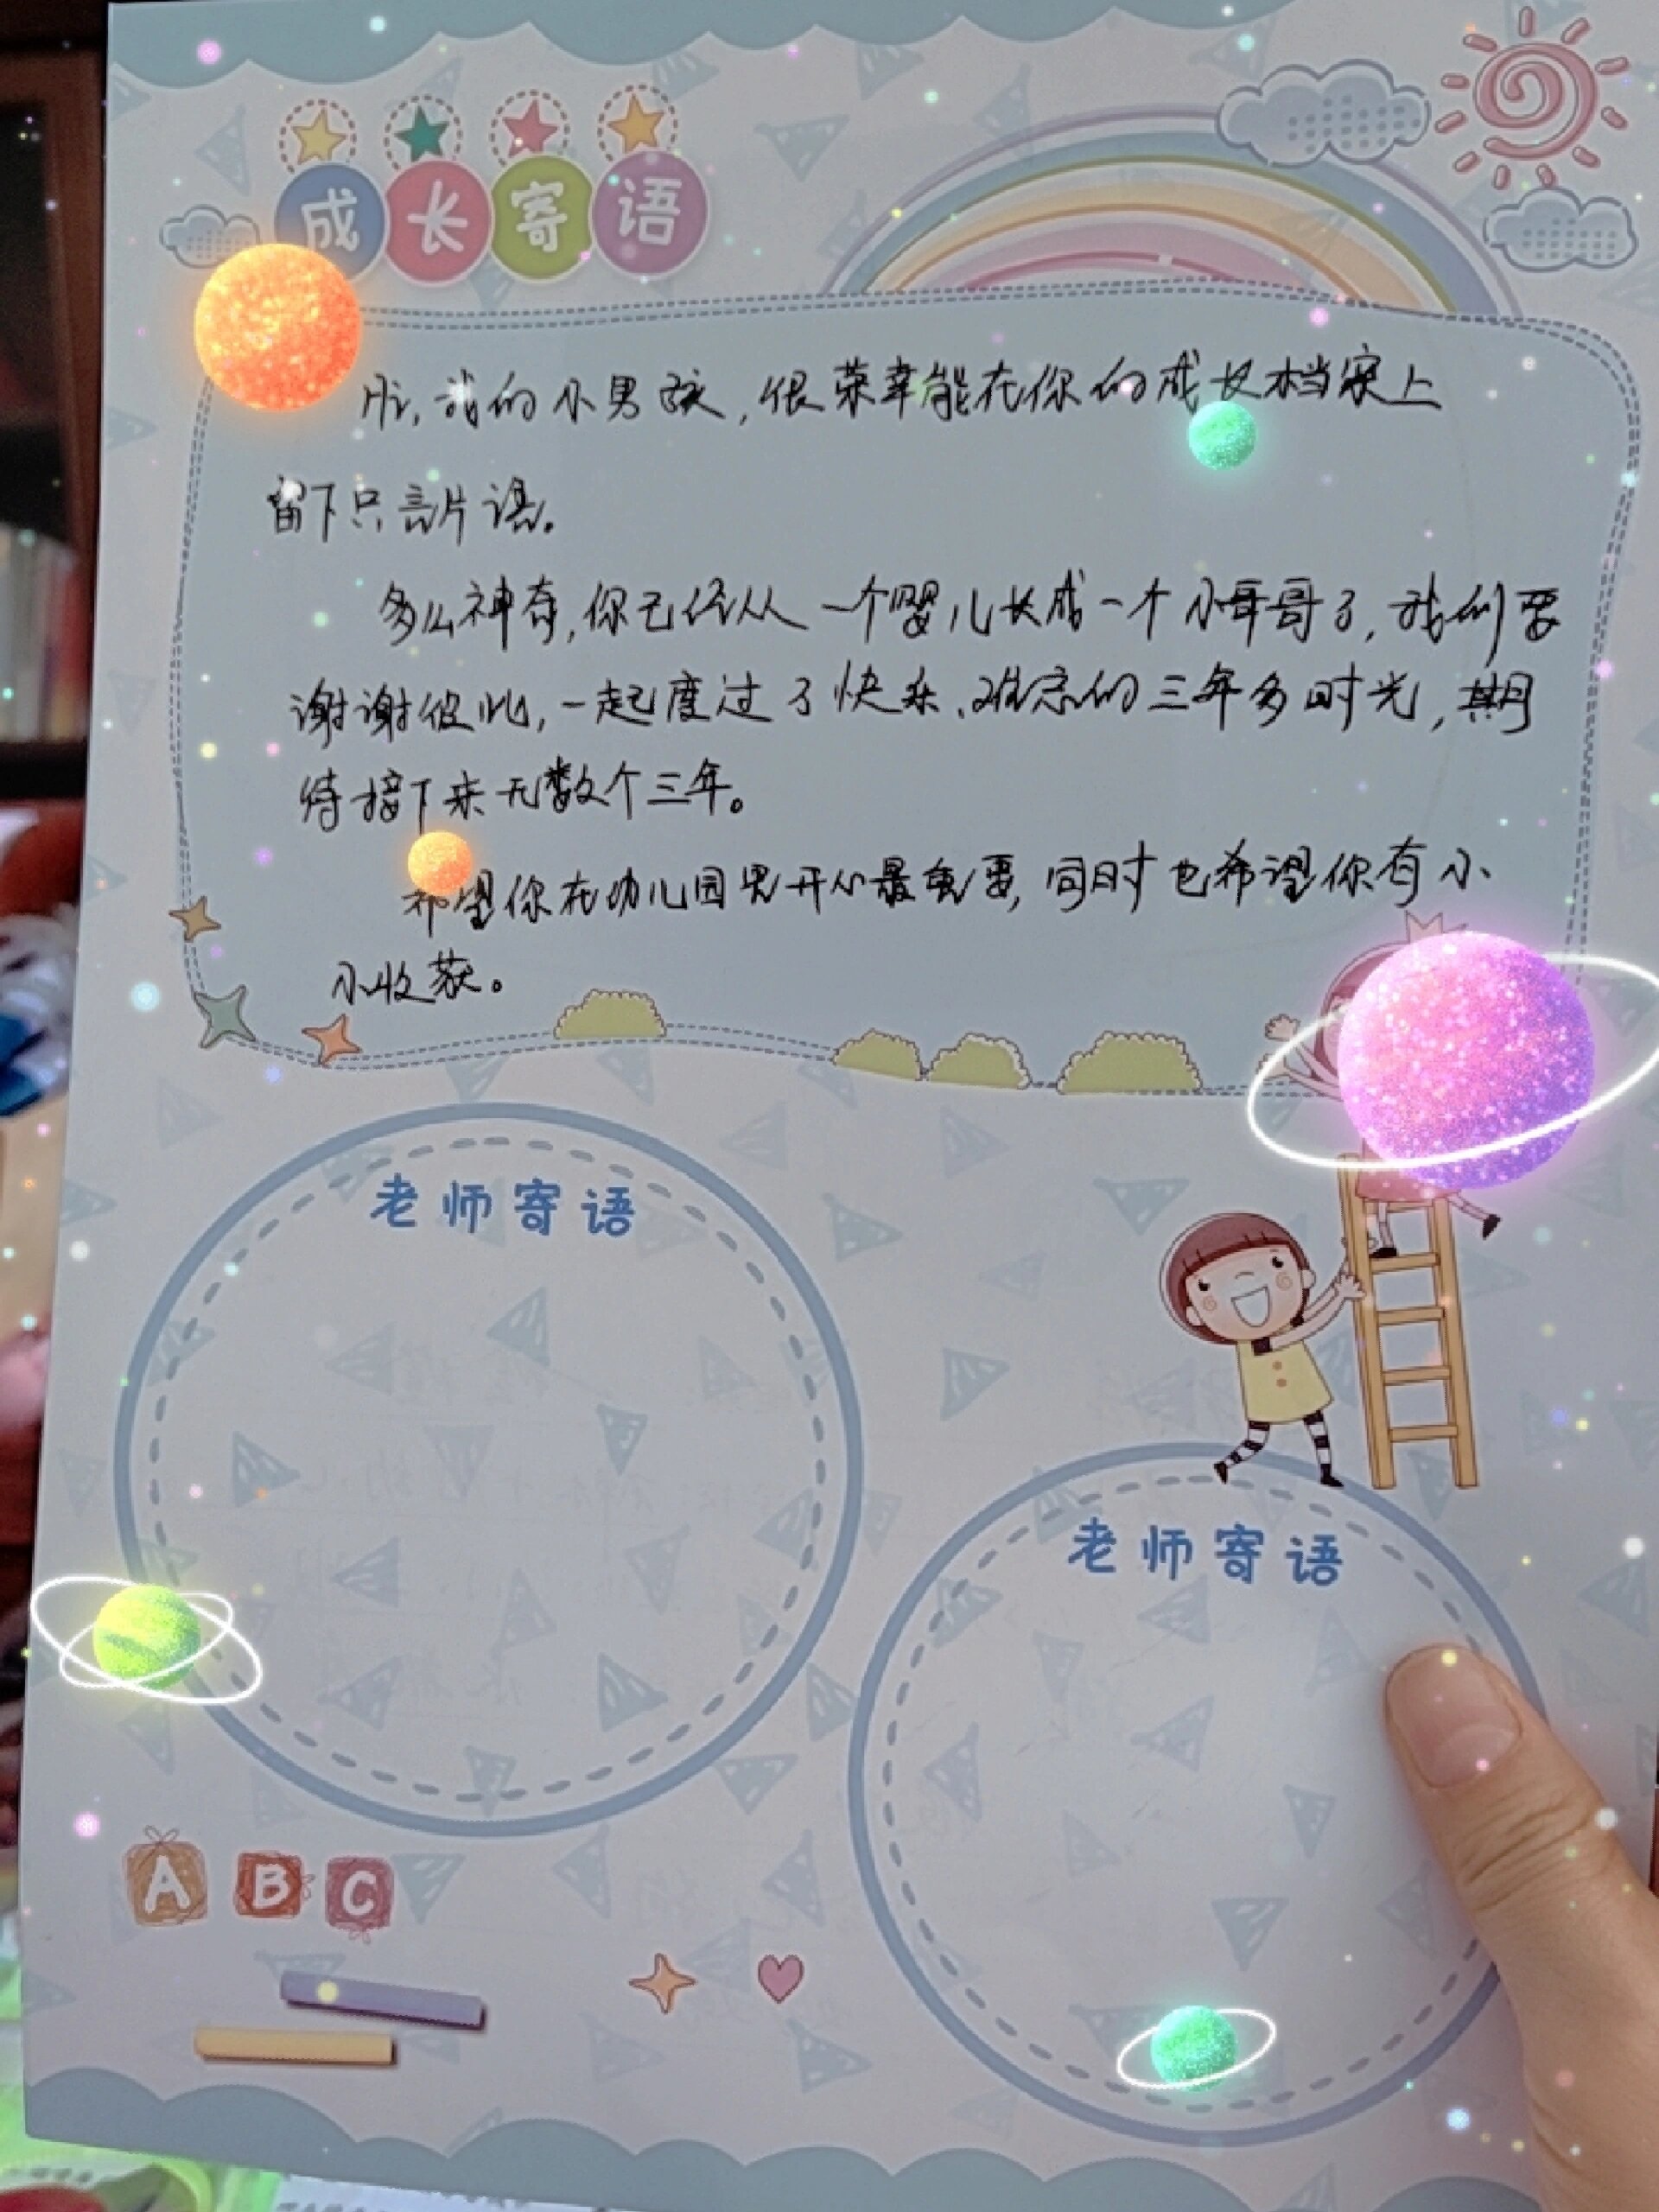 成长寄语
hi，我的小男孩，很荣幸能在你的成长档案上
留下只言片语。
多么神奇，你已经从一个婴儿长成一个小哥哥了，我们要
谢谢彼此，一起度过了快乐、难忘的三年多时光，期
待接下来无数个三年。
希望你在幼儿园里开心最重要，同时也希望你有小
小收获。
老师寄语
老师寄语
A B C